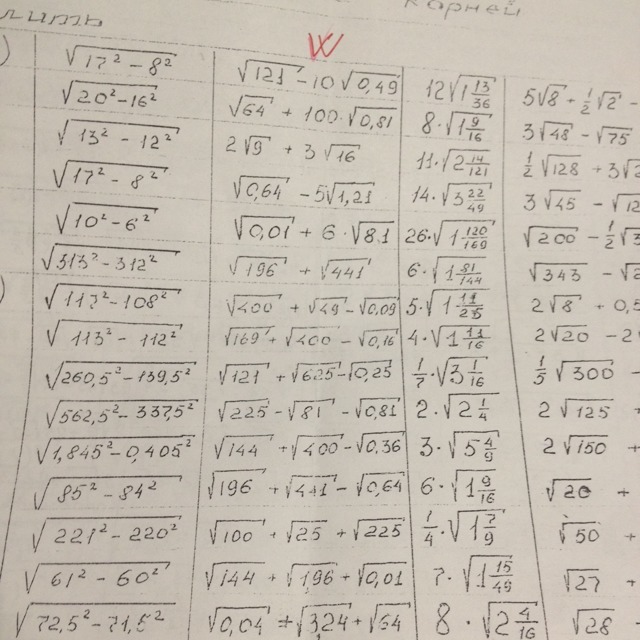 лить корней
√17² - 8² √121 - 10√0,49 12√1 13/36 5√8 + 1/2√2 -
√20² - 16² √64 + 100·√0,81 8·√1 9/16 3√48 - √75
√13² - 12² 2√9 + 3√16 11·√2 14/121 1/2√128 + 3√2
√17² - 8² √0,64 - 5√1,21 14·√3 22/49 3√45 - √12
√10² - 6² √0,01 + 6·√8,1 26·√1 120/169 √200 - 1/2√3
√313² - 312² √196 + √441 6·√1 81/144 √343 - √2
√117² - 108² √400 + √49 - √0,09 5·√1 11/25 2√8 + 0,5
√113² - 112² √169 + √400 - √0,16 4·√1 11/16 2√20 - 2
√260,5² - 139,5² √121 + √625 - √0,25 1/7·√3 1/16 1/5√300 -
√562,5² - 337,5² √225 - √81 - √0,81 2·√2 1/4 2√125 +
√1,845² - 0,405² √144 + √400 - √0,36 3·√5 4/9 2√150 +
√85² - 84² √196 + √441 - √0,64 6·√1 9/16 √20 +
√221² - 220² √100 + √25 + √225 1/4·√1 7/9 √50 +
√61² - 60² √144 + √1,96 + √0,01 7·√1 15/49 √27 +
√72,5² - 71,5² √0,04 + √3,24 + √64 8·√2 4/16 √28 -